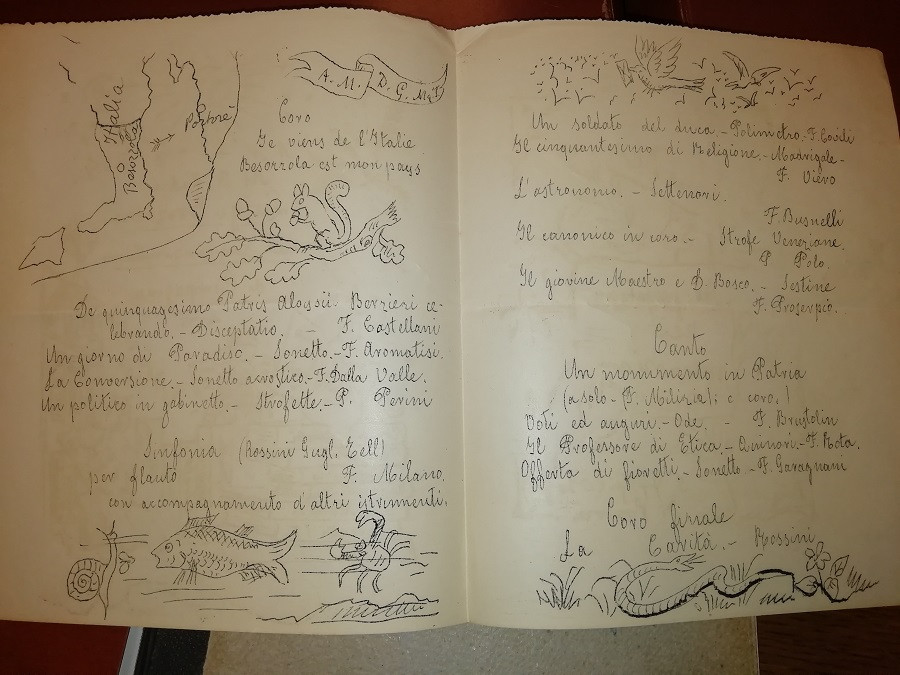 Italia
Besozzola
Portoré
A. M. D. G. M.
Coro
Je viens de l'Italie
Besozzola est mon pays
De quinquagesimo Patris Aloysii Berzieri ce-
lebrando. - Disceptatio. - F. Castellani
Un giorno di Paradiso. - Sonetto. - F. Aromatisi.
La Conversione. - Sonetto acrostico. - F. Dalla Valle.
Un politico in gabinetto. - Strofette. - P. Perini
Sinfonia (Rossini Gugl. Tell)
per flauto F. Milano.
con accompagnamento d'altri istrumenti.
Un soldato del duca. - Polimetro. - F.
Il cinquantesimo di Religione. - Madrigale -
F. Vievo
L'astronomo. - Settenari.
F. Busnelli
Il canonico in coro. - Strofe Veneziane.
P Polo.
Il giovine Maestro e D. Bosco. - Sestine
F. Proserpio.
Canto
Un monumento in Patria
(a solo - (F. Milizia); e coro.)
Voti ed auguri. - Ode. - F. Brustolin
Il Professore di Etica. - Quinari. - F. Rota.
Offerta di fioretti. - Sonetto - F. Garagnani
Coro finale
La Carità. - Rossini